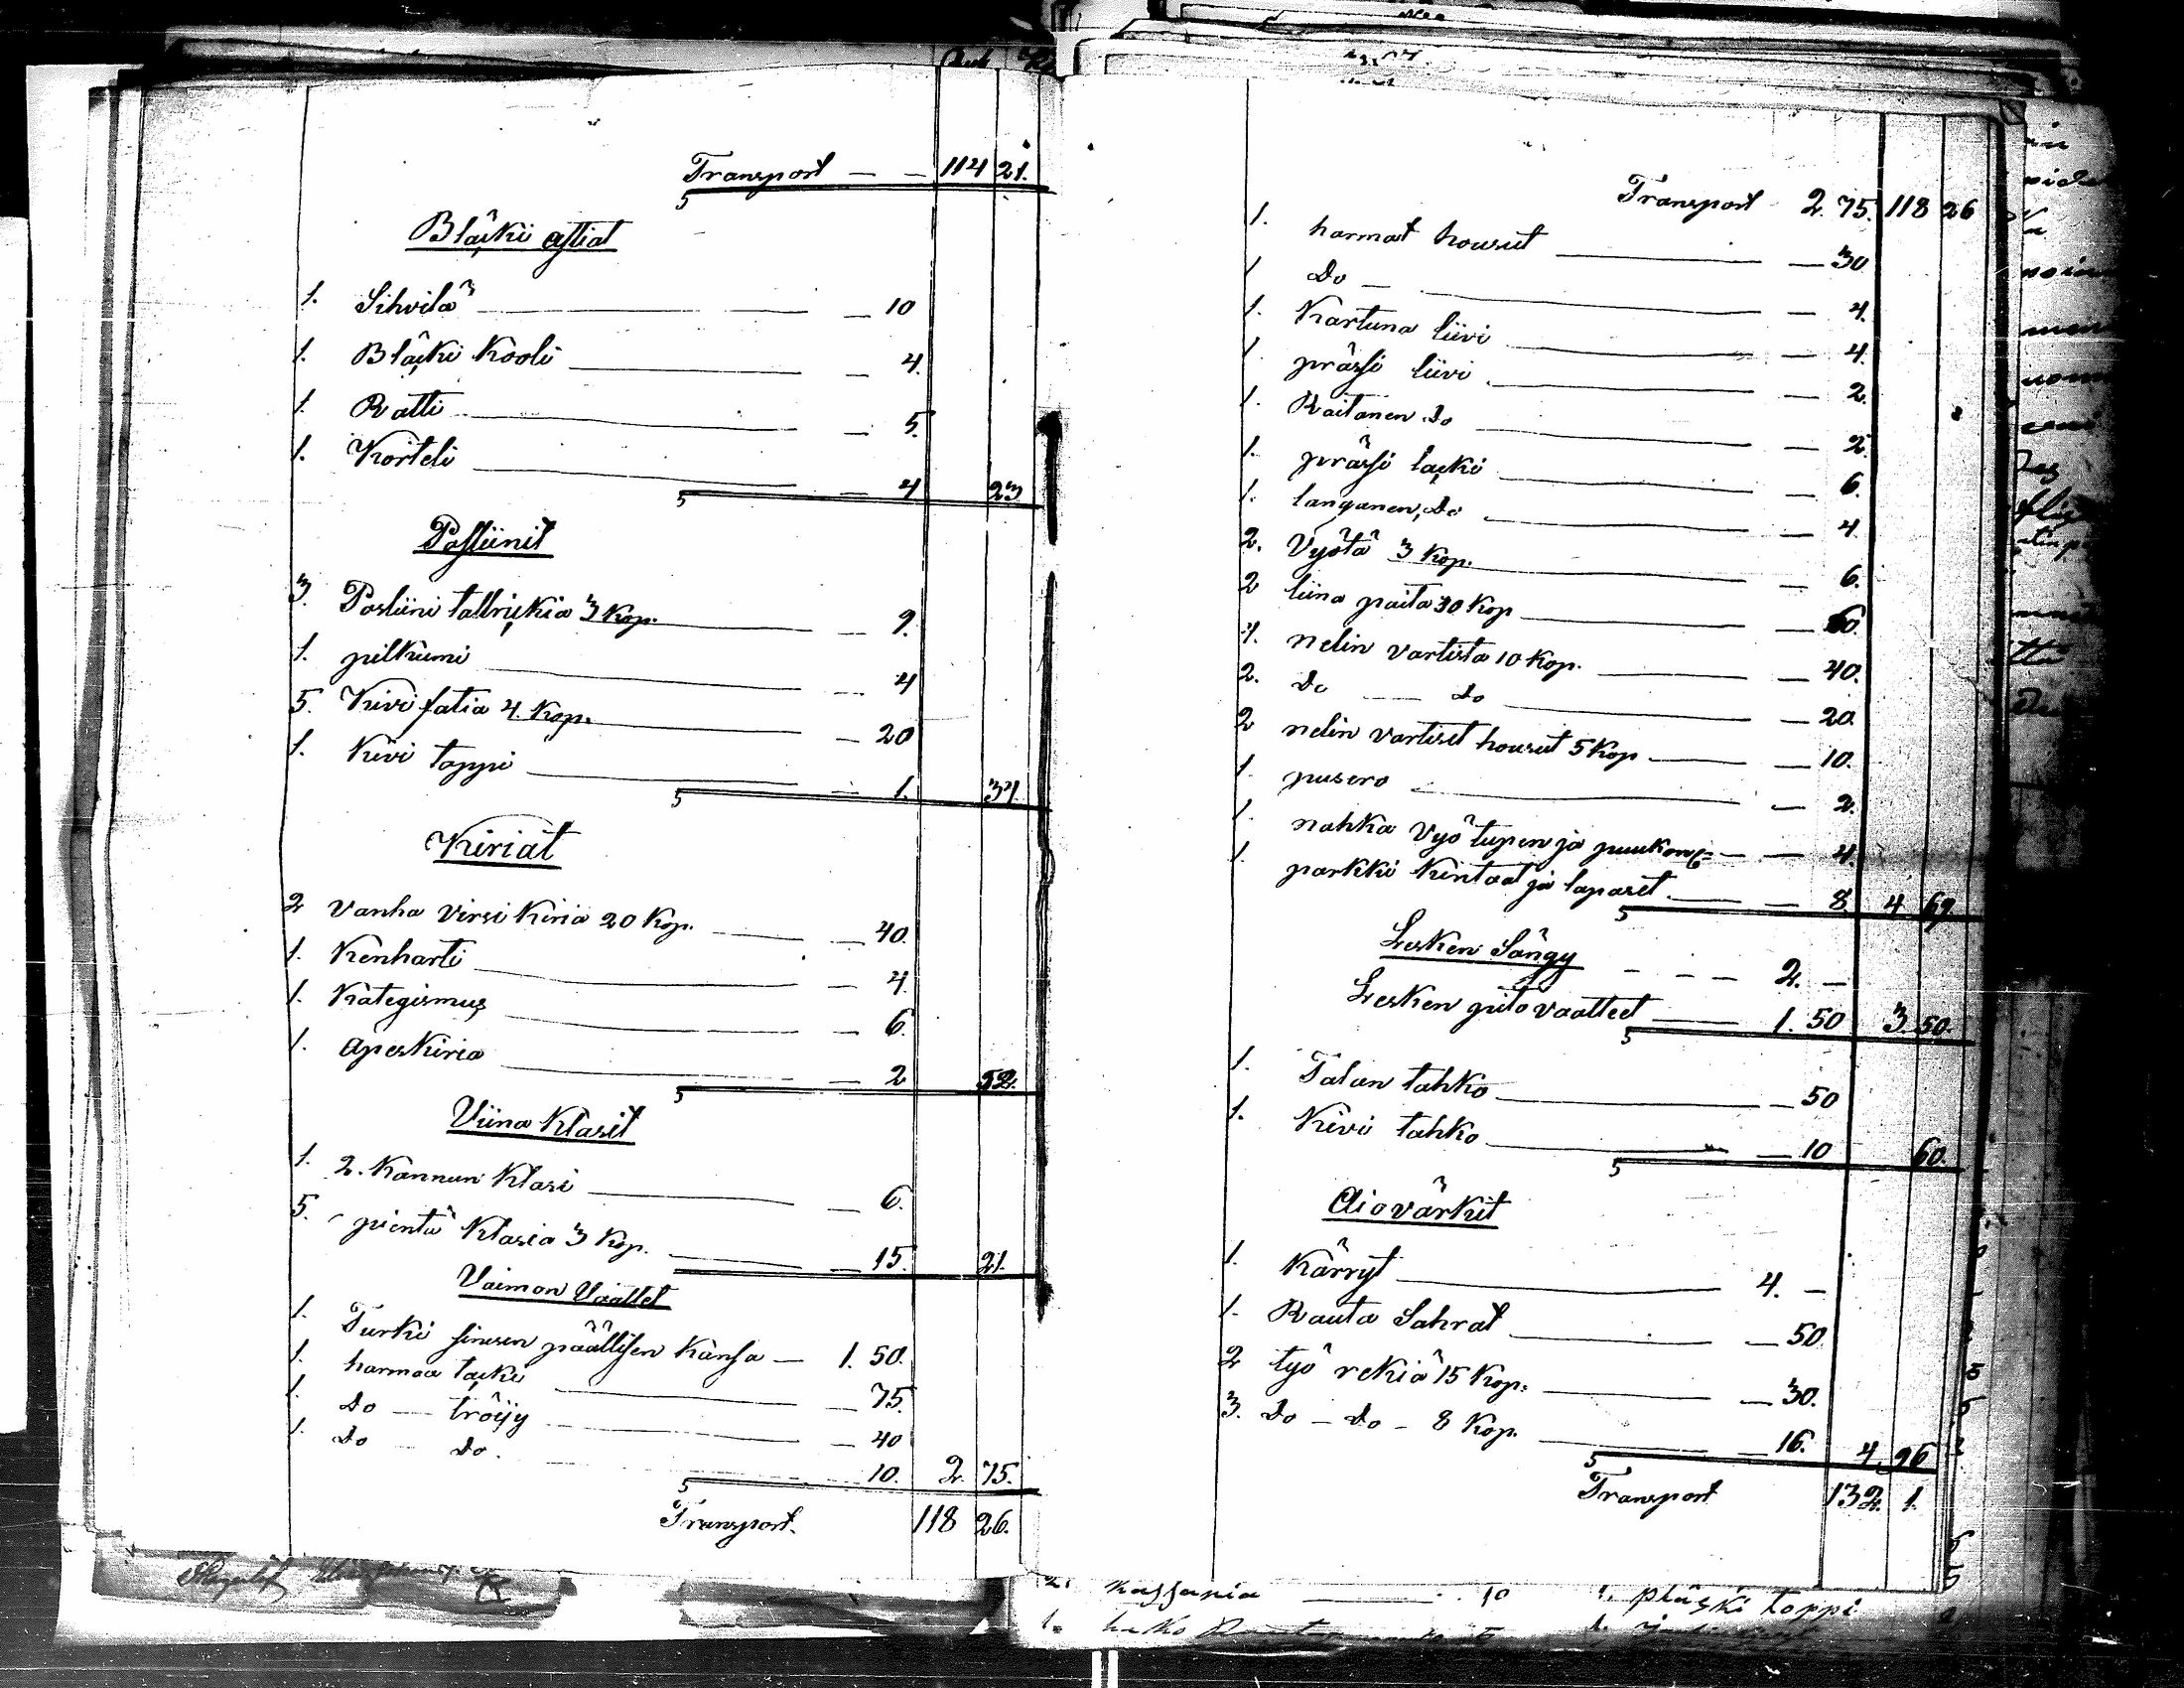 Rub
Transport — — 114 21.
Bläkii astiat
1. Sihvilä — 10
1. Bläki Kooli — 4.
1. Ratti — 5.
1. Korteli — 4 23
Posliinit
3. Posliini tallrikia 3 Kop. — 9.
1. pilkumi — 4
5. Kivi fatia 4 Kop. — 20
1. Kivi toppi — 1. 34.
Kiriat
2 vanha virsi Kiria 20 Kop. — 40.
1. Kenharti — 4.
1. Kategismus — 6.
1. Apeskiria — 2 52.
Viina Klasit
1. 2. Kannun Klasi — 6.
5. pientä Klasia 3 Kop. — 15. 21.
Vaimon Vaattet
1. Turki sinisen päällisen Kansa — 1. 50.
1. harmaa takki — 75.
1. Do — tröijy — 40
1. Do — Do. — 10. 2. 75.
Transport. 118 26.
Transport 2. 75. 118 26
1. harmat housut — 30
1 Do — 4.
1. Kartuna liivi — 4.
1 prässi liivi — 2.
1. Raitanen Do — 2
1. prässi takki — 6.
1. langanen, Do — 4.
2. Vyötä 3 Kop. — 6.
2 liina paita 30 Kop — 60.
4. nelin vartista 10 Kop. — 40.
2. Do — Do — 20.
2 nelin vartiset housut 5 Kop — 10.
1. pusero — 2.
1. nahka vyö tupen ja puukon — 4.
1. parkki Kintaat ja lapaset — 8. 4 69.
Lesken Sängy — — — 2. —
Lesken pito vaatteet — 1. 50 3. 50.
1. Talan tahko — 50
1. Kivi tahko — 10 60.
Aiovärkit
1. Kärryt — 4. —
1. Rauta Sahrat — 50
2 työ rekiä 15 Kop. — 30.
3. Do — Do — 8 Kop. — 16. 4. 96
Transport 132. 1.
10 1. pläski toppi